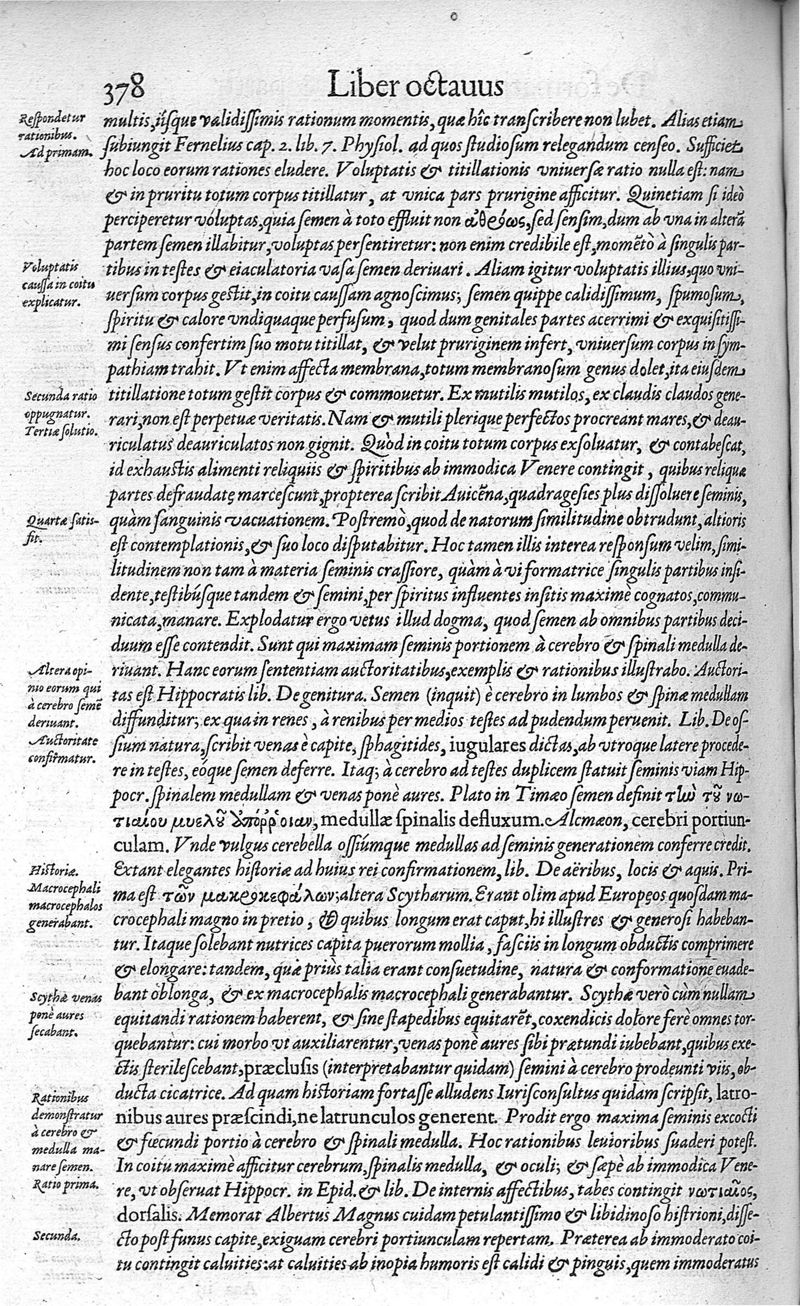 378
Liber octauus
Respondetur
rationibus.
Ad primam.
multis, iísque validissimis rationum momentis, quæ hîc transcribere non lubet. Alias etiam
subiungit Fernelius cap. 2. lib. 7. Physiol. ad quos studiosum relegandum censeo. Sufficiet
hoc loco eorum rationes eludere. Voluptatis & titillationis vniuersæ ratio nulla est: nam
& in pruritu totum corpus titillatur, at vnica pars prurigine afficitur. Quinetiam si ideò
perciperetur voluptas, quia semen à toto effluit non ἀθρόως, sed sensim, dum ab vna in alterã
partem semen illabitur, voluptas persentiretur: non enim credibile est, momẽtò à singulis par-
Voluptatis
caussa in coitu
explicatur.
tibus in testes & eiaculatoria vasa semen deriuari. Aliam igitur voluptatis illius, quo vni-
uersum corpus gestit, in coitu caussam agnoscimus; semen quippe calidissimum, spumosum,
spiritu & calore vndiquaque perfusum, quod dum genitales partes acerrimi & exquisitissi-
mi sensus confertim suo motu titillat, & velut pruriginem infert, vniuersum corpus in sym-
pathiam trahit. Vt enim affecta membrana, totum membranosum genus dolet, ita eiusdem
Secunda ratio
oppugnatur.
Tertiæ solutio.
titillatione totum gestit corpus & commouetur. Ex mutilis mutilos, ex claudis claudos gene-
rari, non est perpetuæ veritatis. Nam & mutili plerique perfectos procreant mares, & deau-
riculatus deauriculatos non gignit. Quòd in coitu totum corpus exsoluatur, & contabescat,
id exhaustis alimenti reliquiis & spiritibus ab immodica Venere contingit, quibus reliquæ
partes defraudatę marcescunt, propterea scribit Auicẽna, quadragesies plus dissoluere seminis,
Quartæ satis-
fit.
quàm sanguinis vacuationem. Postremò, quod de natorum similitudine obtrudunt, altioris
est contemplationis, & suo loco disputabitur. Hoc tamen illis interea responsum velim, simi-
litudinem non tam à materia seminis crassiore, quàm à vi formatrice singulis partibus insi-
dente, testibúsque tandem & semini, per spiritus influentes insitis maximè cognatos, commu-
nicata, manare. Explodatur ergo vetus illud dogma, quod semen ab omnibus partibus deci-
duum esse contendit. Sunt qui maximam seminis portionem à cerebro & spinali medulla de-
Altera opi-
nio eorum qui
à cerebro semẽ
deriuant.
Auctoritate
confirmatur.
riuant. Hanc eorum sententiam auctoritatibus, exemplis & rationibus illustrabo. Auctori-
tas est Hippocratis lib. De genitura. Semen (inquit) è cerebro in lumbos & spinæ medullam
diffunditur; ex qua in renes, à renibus per medios testes ad pudendum peruenit. Lib. De os-
sium natura, scribit venas è capite, sphagitides, iugulares dictas, ab vtroque latere procede-
re in testes, eóque semen deferre. Itaq; à cerebro ad testes duplicem statuit seminis viam Hip-
pocr. spinalem medullam & venas ponè aures. Plato in Timæo semen definit τὴν τοῦ νω-
τιαίου μυελοῦ ἀπόρροιαν, medullæ spinalis defluxum. Alcmæon, cerebri portiun-
culam. Vnde vulgus cerebella ossiúmque medullas ad seminis generationem conferre credit.
Historiæ.
Macrocephali
macrocephalos
generabant.
Extant elegantes historiæ ad huius rei confirmationem, lib. De aëribus, locis & aquis. Pri-
ma est τῶν μακροκεφάλων; altera Scytharum. Erant olim apud Europęos quosdam ma-
crocephali magno in pretio, & quibus longum erat caput, hi illustres & generosi habeban-
tur. Itaque solebant nutrices capita puerorum mollia, fasciis in longum obductis comprimere
& elongare: tandem, quæ priùs talia erant consuetudine, natura & conformatione euade-
Scythæ venas
ponè aures
secabant.
bant oblonga, & ex macrocephalis macrocephali generabantur. Scythæ verò cùm nullam
equitandi rationem haberent, & sine stapedibus equitarẽt, coxendicis dolore ferè omnes tor-
quebantur: cui morbo vt auxiliarentur, venas ponè aures sibi prætundi iubebant, quibus exe-
ctis sterilescebant, præclusis (interpretabantur quidam) semini à cerebro prodeunti viis, ob-
ducta cicatrice. Ad quam historiam fortasse alludens Iurisconsultus quidam scripsit, latro-
Rationibus
demonstratur
à cerebro &
medulla ma-
nare semen.
Ratio prima.
nibus aures præscindi, ne latrunculos generent. Prodit ergo maxima seminis excocti
& fœcundi portio à cerebro & spinali medulla. Hoc rationibus leuioribus suaderi potest.
In coitu maximè afficitur cerebrum, spinalis medulla, & oculi; & sæpè ab immodica Vene-
re, vt obseruat Hippocr. in Epid. & lib. De internis affectibus, tabes contingit νωτιαῖος,
dorsalis. Memorat Albertus Magnus cuidam petulantissimo & libidinoso histrioni, disse-
Secunda.
cto post funus capite, exiguam cerebri portiunculam repertam. Præterea ab immoderato coi-
tu contingit caluities: at caluities ab inopia humoris est calidi & pinguis, quem immoderatus